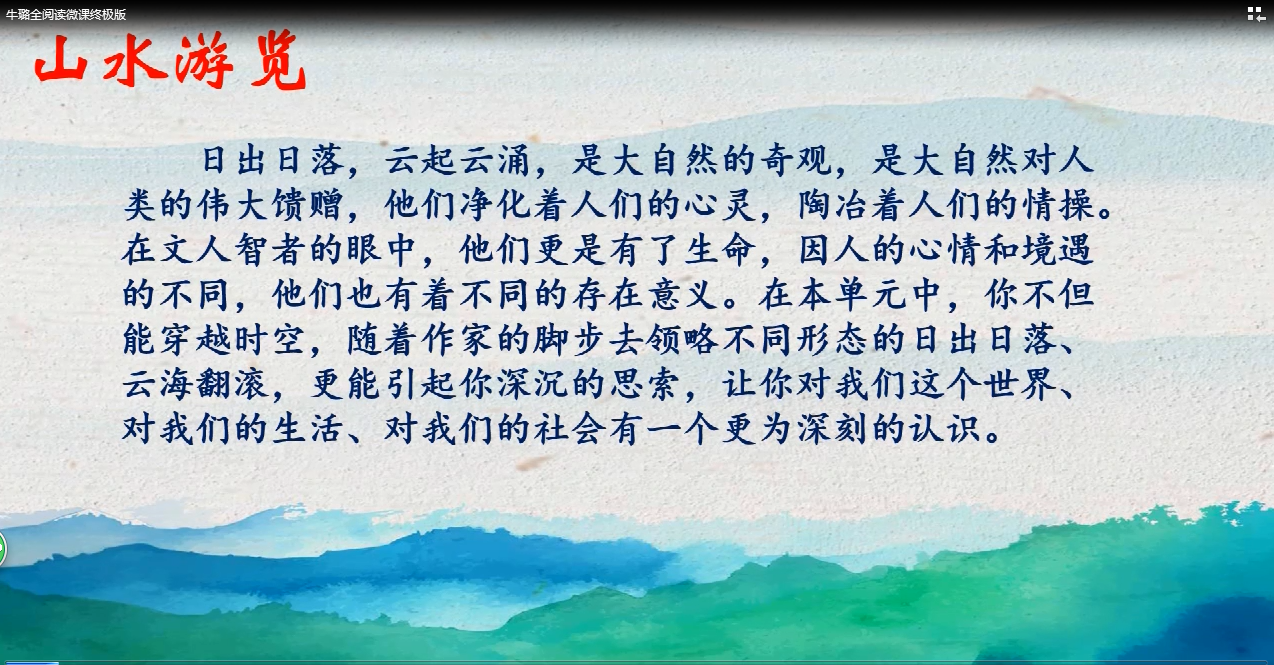 牛璐全阅读微课终极版
山水游览
日出日落，云起云涌，是大自然的奇观，是大自然对人
类的伟大馈赠，他们净化着人们的心灵，陶冶着人们的情操。
在文人智者的眼中，他们更是有了生命，因人的心情和境遇
的不同，他们也有着不同的存在意义。在本单元中，你不但
能穿越时空，随着作家的脚步去领略不同形态的日出日落、
云海翻滚，更能引起你深沉的思索，让你对我们这个世界、
对我们的生活、对我们的社会有一个更为深刻的认识。